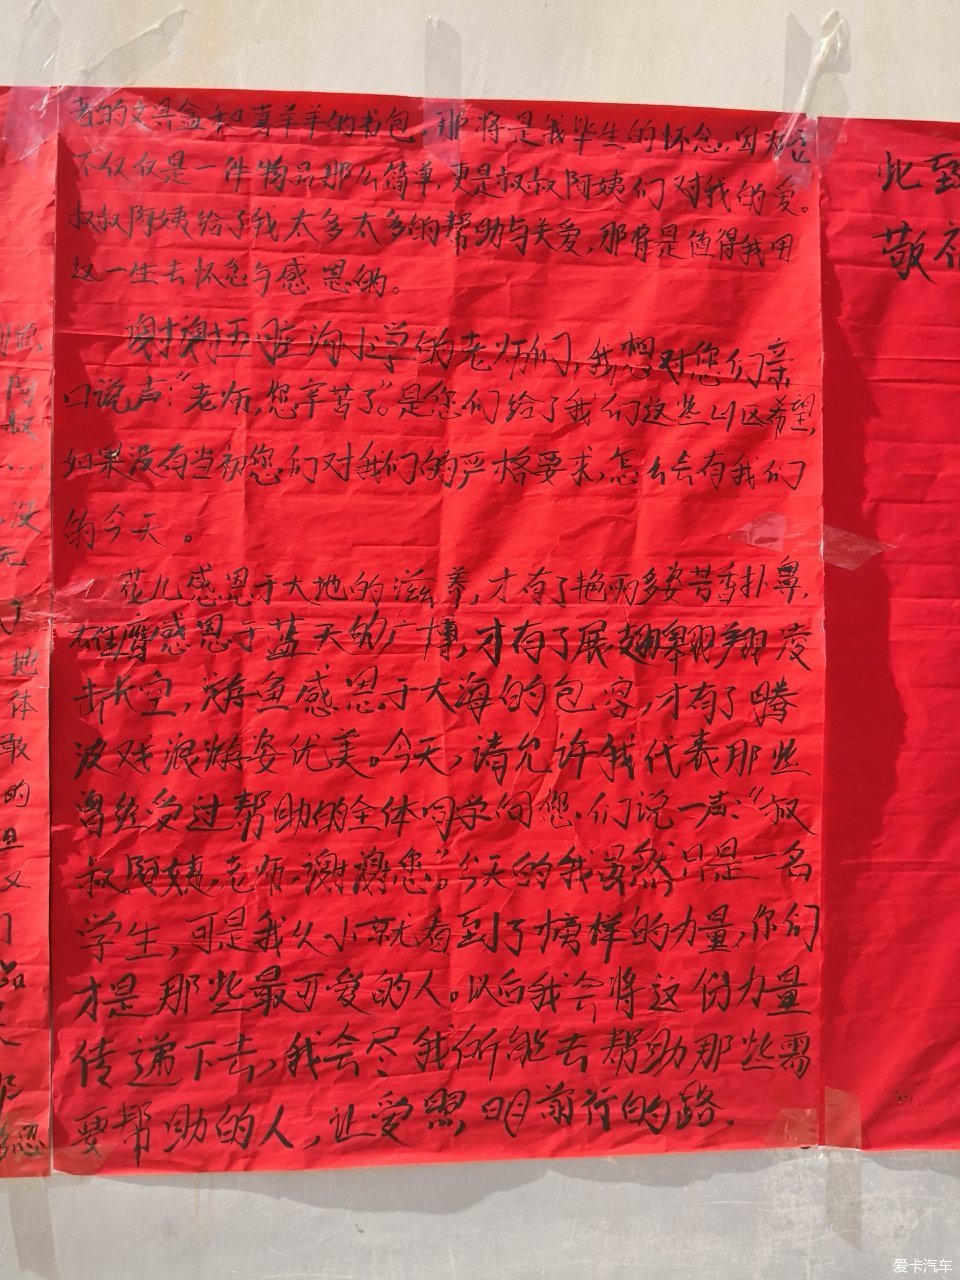 者的文具盒和喜羊羊的书包，那将是我毕生的怀念，因为它
不仅仅是一件物品那么简单，更是叔叔阿姨们对我的爱。
叔叔阿姨给了我太多太多的帮助与关爱，那将是值得我用
这一生去怀念与感恩的。
谢谢沟小学的老师们，我想对您们亲
口说声：“老师，您辛苦了。”是您们给了我们这些山区希望，
如果没有当初您们对我们的严格要求，怎么会有我们
的今天。
花儿感恩于大地的滋养，才有了艳丽多姿芳香扑鼻，
雄鹰感恩于蓝天的广博，才有了展翅翱翔凌
击长空，游鱼感恩于大海的包容，才有了腾
波戏浪游姿优美。今天，请允许我代表那些
曾经受过帮助的全体同学向您们说一声：“叔
叔阿姨，老师，谢谢您”。今天的我虽然只是一名
学生，可是我从小就看到了榜样的力量，你们
才是那些最可爱的人。以后我会将这份力量
传递下去，我会尽我所能去帮助那些需
要帮助的人，让爱照明前行的路．
此致
敬
没
无
地
体
敢
的
且
又
们
爱卡汽车